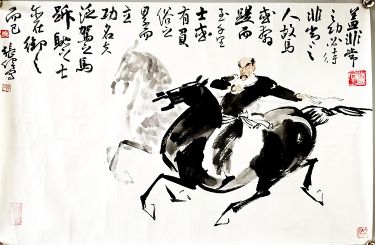 盖非常
之功必待
非常之
人故马
或奔
踶而
至千里
士或
有負
俗之
累而
立
功名夫
泛驾之马
跅弛之士
亦在御之
而已